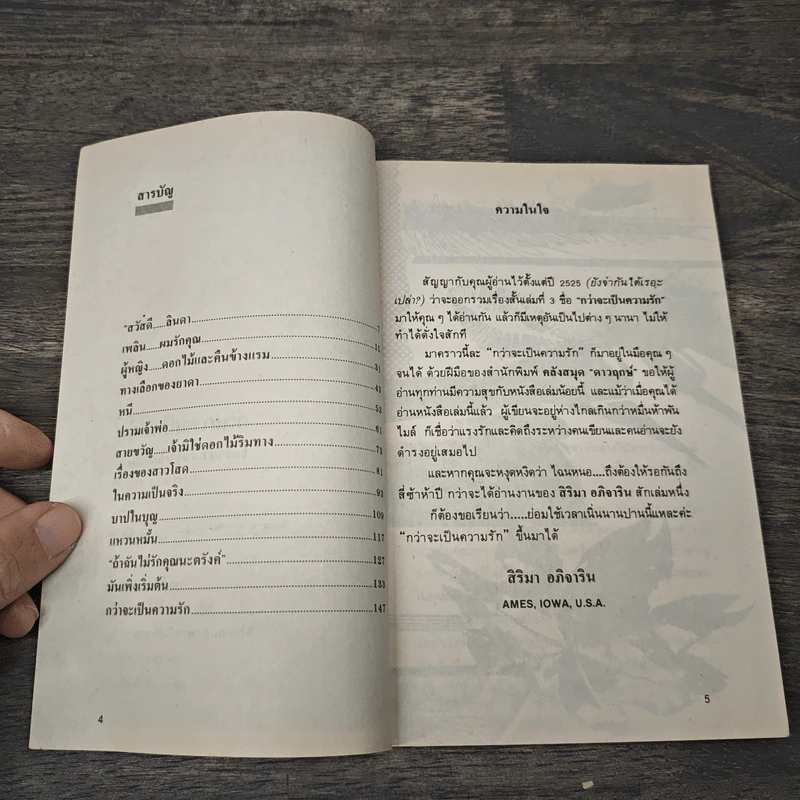 สารบัญ
"สวัสดี.....ลินดา 7
เพลิน.....ผมรักคุณ 15
ผู้หญิง.....ดอกไม้และคืนข้างแรม 31
ทางเลือกของยาดา 43
หนี 53
ปรามเจ้าพ่อ 61
สายขวัญ.....เจ้ามิใช่ดอกไม้ริมทาง 73
เรื่องของสาวโสด 81
ในความเป็นจริง 93
บาปในบุญ 109
แหวนหมั้น 117
"ถ้าฉันไม่รักคุณนะตรังค์" 127
มันเพิ่งเริ่มต้น 133
กว่าจะเป็นความรัก 147
4
ความในใจ
สัญญากับคุณผู้อ่านไว้ตั้งแต่ปี 2525 (ยังจำกันได้เรอะ
เปล่า?) ว่าจะออกรวมเรื่องสั้นเล่มที่ 3 ชื่อ "กว่าจะเป็นความรัก"
มาให้คุณ ๆ ได้อ่านกัน แล้วก็มีเหตุอันเป็นไปต่าง ๆ นานา ไม่ให้
ทำได้ดั่งใจสักที
มาคราวนี้ละ "กว่าจะเป็นความรัก" ก็มาอยู่ในมือคุณ ๆ
จนได้ ด้วยฝีมือของสำนักพิมพ์ คลังสมุด "ดาวฤกษ์" ขอให้ผู้
อ่านทุกท่านมีความสุขกับหนังสือเล่มน้อยนี้ และแม้ว่าเมื่อคุณได้
อ่านหนังสือเล่มนี้แล้ว ผู้เขียนจะอยู่ห่างไกลเกินกว่าหมื่นห้าพัน
ไมล์ ก็เชื่อว่าแรงรักและคิดถึงระหว่างคนเขียนและคนอ่านจะยัง
ดำรงอยู่เสมอไป
และหากคุณจะหงุดหงิดว่า ไฉนหนอ....ถึงต้องให้รอกันถึง
สี่ซ้าห้าปี กว่าจะได้อ่านงานของ สิริมา อภิจาริน สักเล่มหนึ่ง
ก็ต้องขอเรียนว่า.....ย่อมใช้เวลาเนิ่นนานปานนี้แหละค่ะ
"กว่าจะเป็นความรัก" ขึ้นมาได้
สิริมา อภิจาริน
AMES, IOWA, U.S.A.
5